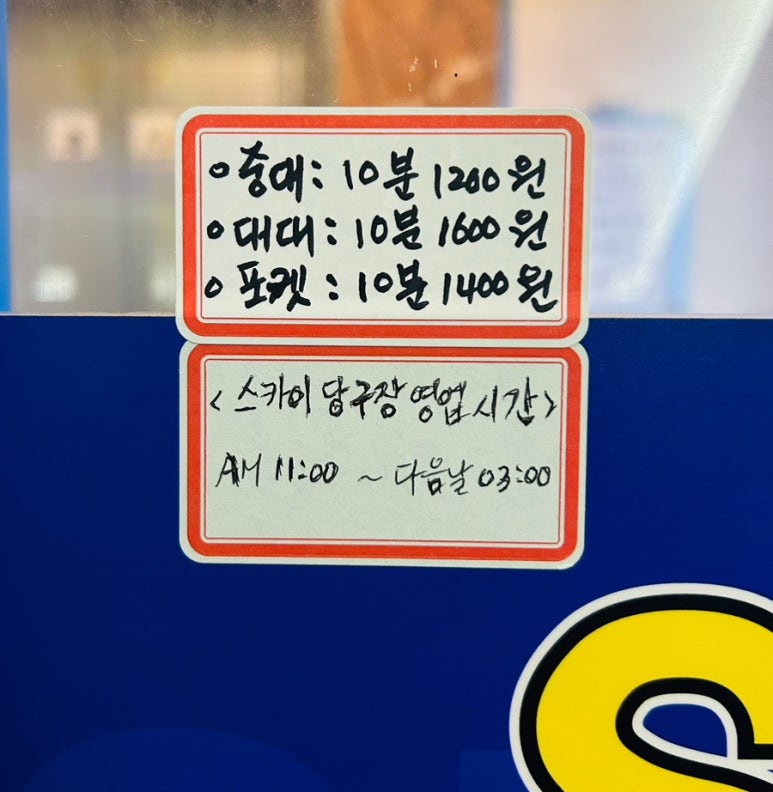 ○ 중대: 10분 1200원
○ 대대: 10분 1600원
○ 포켓: 10분 1400원
<스카이 당구장 영업시간>
AM 11:00 ~ 다음날 03:00
S